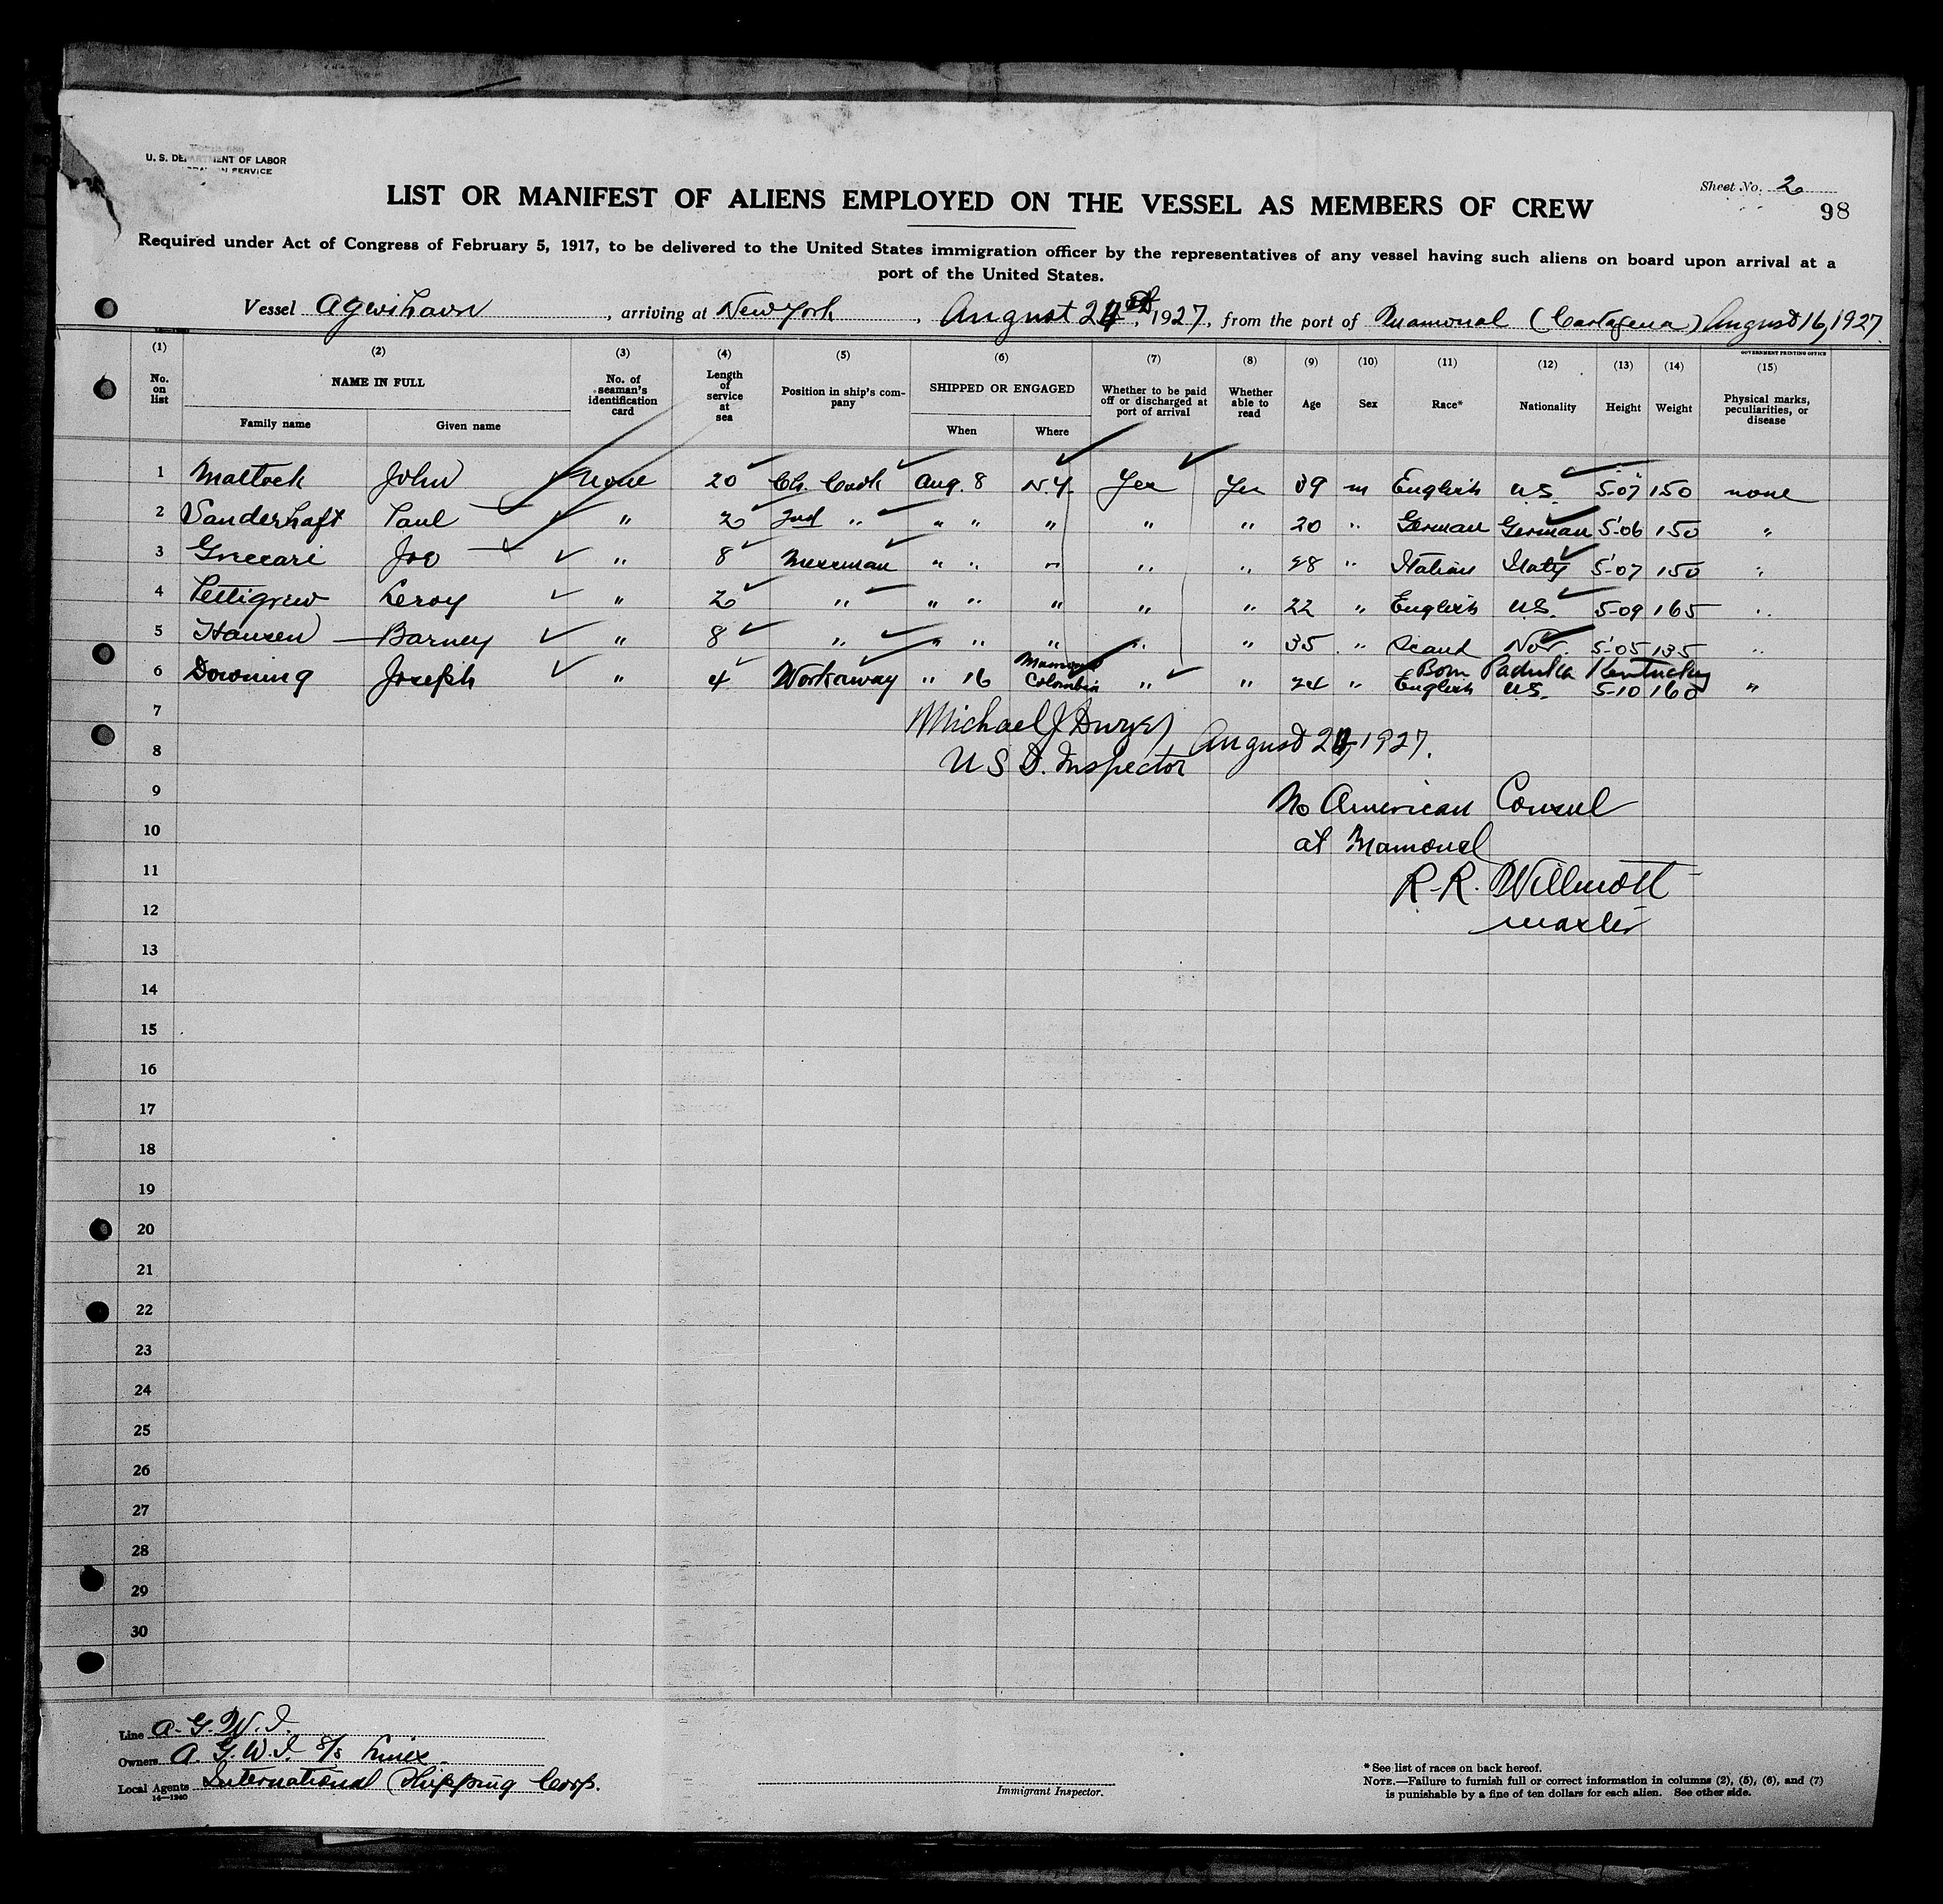 U. S. DEPARTMENT OF LABOR
SERVICE
Sheet No. 2
LIST OR MANIFEST OF ALIENS EMPLOYED ON THE VESSEL AS MEMBERS OF CREW
98
Required under Act of Congress of February 5, 1917, to be delivered to the United States immigration officer by the representatives of any vessel having such aliens on board upon arrival at a
port of the United States.
Vessel Agwihavn, arriving at New York, August 1927, from the port of Mamonal (Cartagena) August 16, 1927.
GOVERNMENT PRINTING OFFICE
(1) (2) (3) (4) (5) (6) (7) (8) (9) (10) (11) (12) (13) (14) (15)
No. on list NAME IN FULL No. of seaman's identification card Length of service at sea Position in ship's company SHIPPED OR ENGAGED Whether to be paid off or discharged at port of arrival Whether able to read Age Sex Race* Nationality Height Weight Physical marks, peculiarities, or disease
Family name Given name When Where
1 Mattock John None 20 Ch. Cook Aug. 8 N.Y. Yes Yes 39 m English U.S. 5-07 150 none
2 Sanderhaft Paul " 2 2nd " " " " " " 20 " German German 5-06 150 "
3 Joe " 8 Messman " " " " " 28 " Italian Italy 5-07 150 "
4 Pettigrew Leroy " 2 " " " " " " 22 " English U.S. 5-09 165 "
5 Hansen Barney " 8 " " " " " " 35 " Scand Nor. 5-05 135 "
Born Paduka Kentucky
6 Downing Joseph " 4 Workaway " 16 Mamonal Colombia " " 24 " English U.S. 5-10 160 "
7
Michael J Dwyer August 1927.
8
U S I. Inspector
9
No American Consul
10
at Mamonal
11
R. R. Willmott
12
Master
13
14
15
16
17
18
19
20
21
22
23
24
25
26
27
28
29
30
Line A. G. W. I.
Owners A. G. W. I. S/S Lines
Local Agents International Shipping Corp.
14—1240
Immigrant Inspector.
* See list of races on back hereof.
NOTE.—Failure to furnish full or correct information in columns (2), (5), (6), and (7)
is punishable by a fine of ten dollars for each alien. See other side.